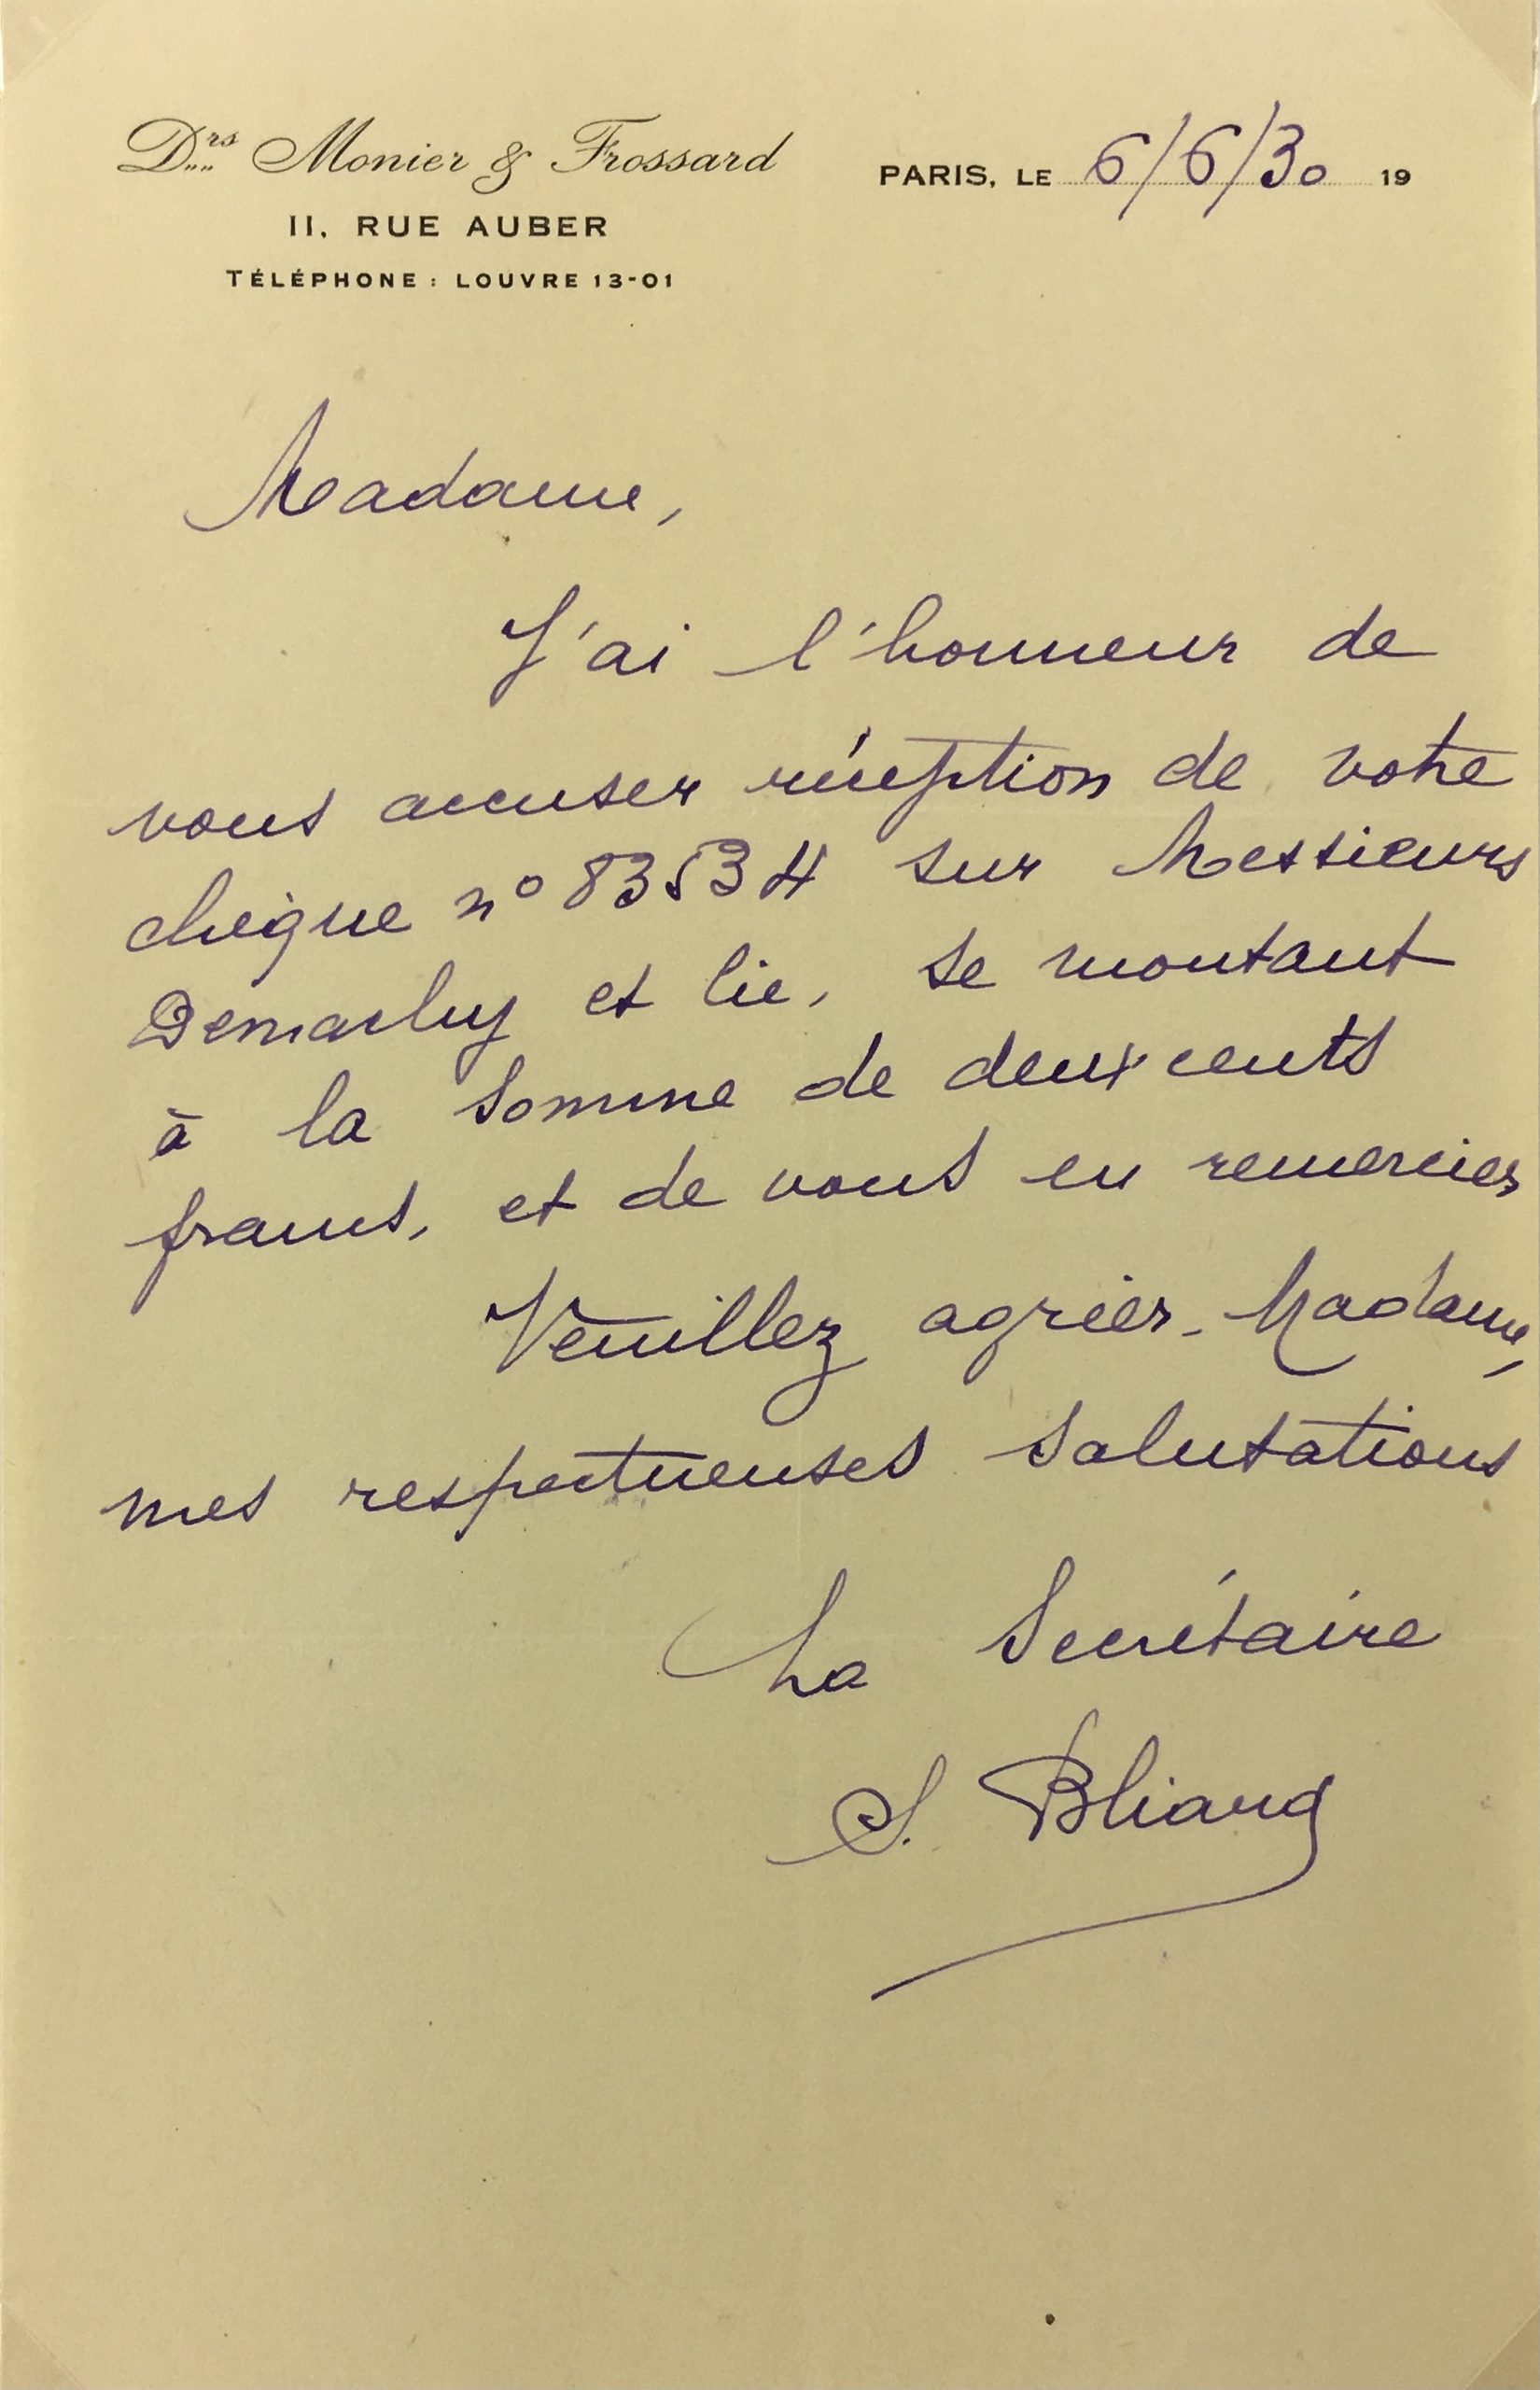 Drs Monier & Frossard
11, RUE AUBER
TÉLÉPHONE : LOUVRE 13-01
PARIS, LE 6/6/30 19
Madame,
J'ai l'honneur de
vous accuser réception de votre
chèque n° 83534 sur Messieurs
Demachy et Cie, se montant
à la somme de deux cents
francs, et de vous en remercier
Veuillez agréer, Madame,
mes respectueuses salutations
La Secrétaire
S. Bliang